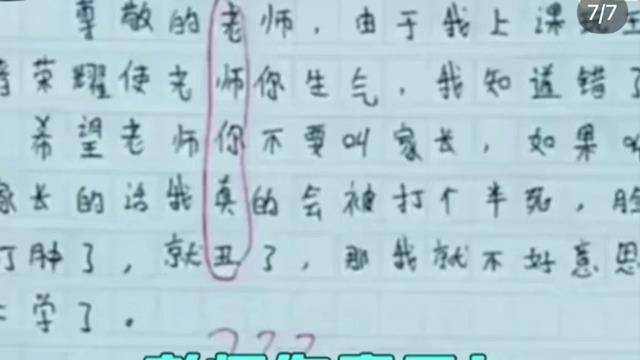 7/7
尊敬的老师，由于我上课
荣耀使老师你生气，我知道错了
希望老师你不要叫家长，如果
家长的话我真的会被打个半死，脸
打肿了，就丑了，那我就不好意思
学了。
???